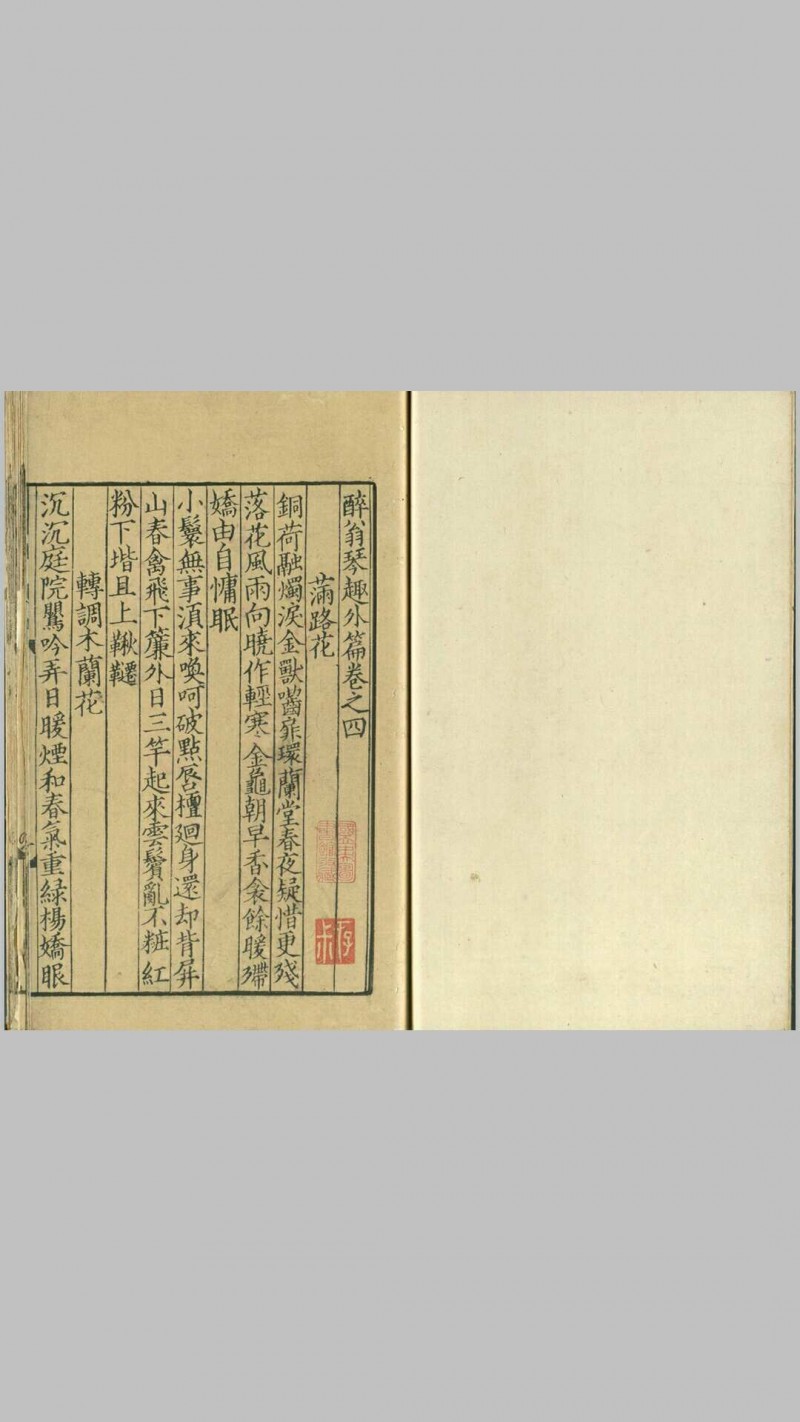 醉翁琴趣外篇卷之四
滿路花
銅荷融燭淚金獸嚙扉環蘭堂春夜疑惜更殘
落花風雨向曉作輕寒金龜朝早香衾餘暖殢
嬌由自慵眠
小鬟無事須來喚呵破點唇檀廻身還却背屏
山春禽飛下簾外日三竿起來雲鬢亂不粧紅
粉下堦且上鞦韆
轉調木蘭花
沉沉庭院鸎吟弄日暖煙和春氣重緑楊嬌眼